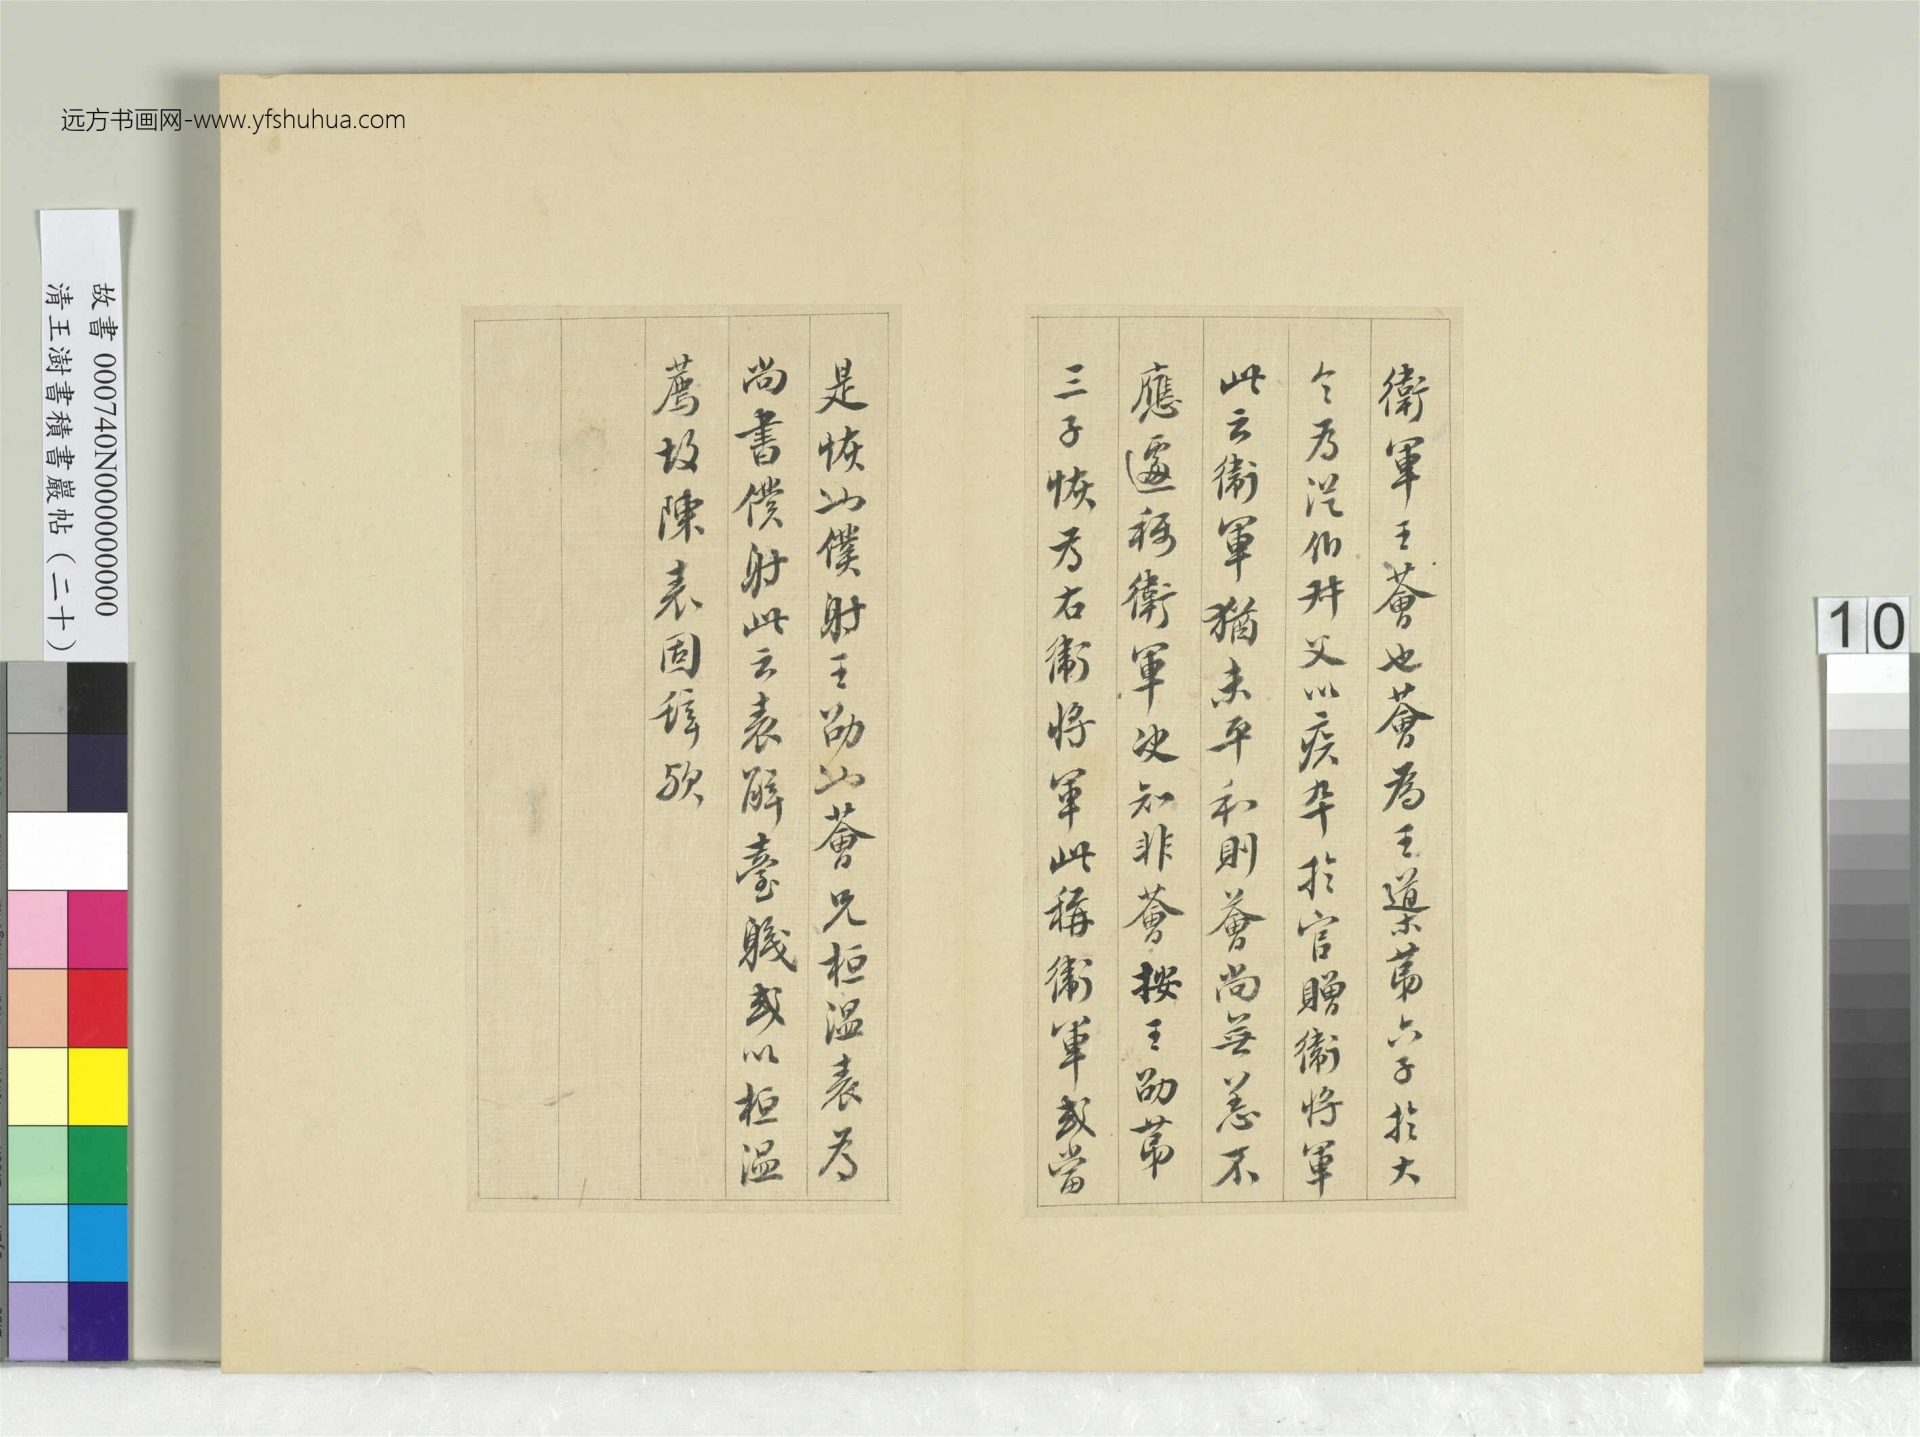 衛軍王薈也薈為王導第六子於大
令為從伯叔父以疾卒於官贈衛將軍
此云衛軍猶未平和則薈尚無恙不
應遽稱衛軍決知非薈按王劭第
三子恢為右衛將軍此稱衛軍或當
是恢也僕射王劭也薈兄桓溫表為
尚書僕射此云表解臺職或以桓溫
薦故陳表固辭歟
远方书画网-www.yfshuhua.com
故書 000740N000000000
清王澍書積書巖帖（二十）
10